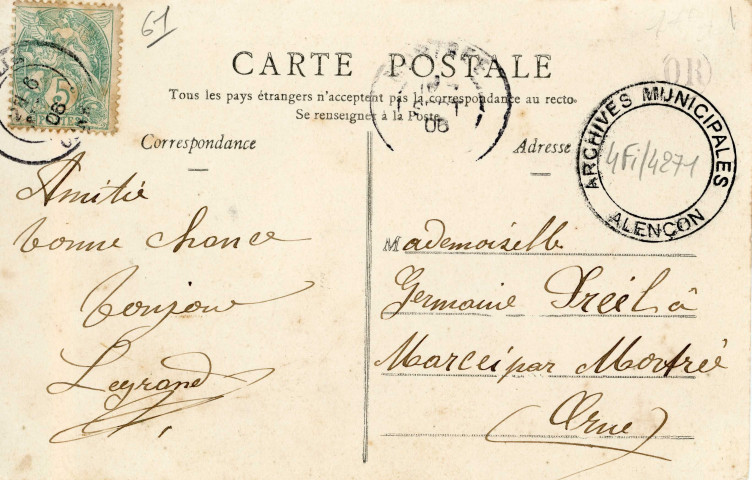 61
CARTE POSTALE
Tous les pays étrangers n'acceptent pas la correspondance au recto.
Se renseigner à la Poste
Correspondance
Adresse
ARCHIVES MUNICIPALES
4Fi/4271
ALENÇON
5
06
06
OR
Amitié
bonne chance
bonjour
Legrand
Mademoiselle
Germaine à
Marcei par Mortrée
(Orne)